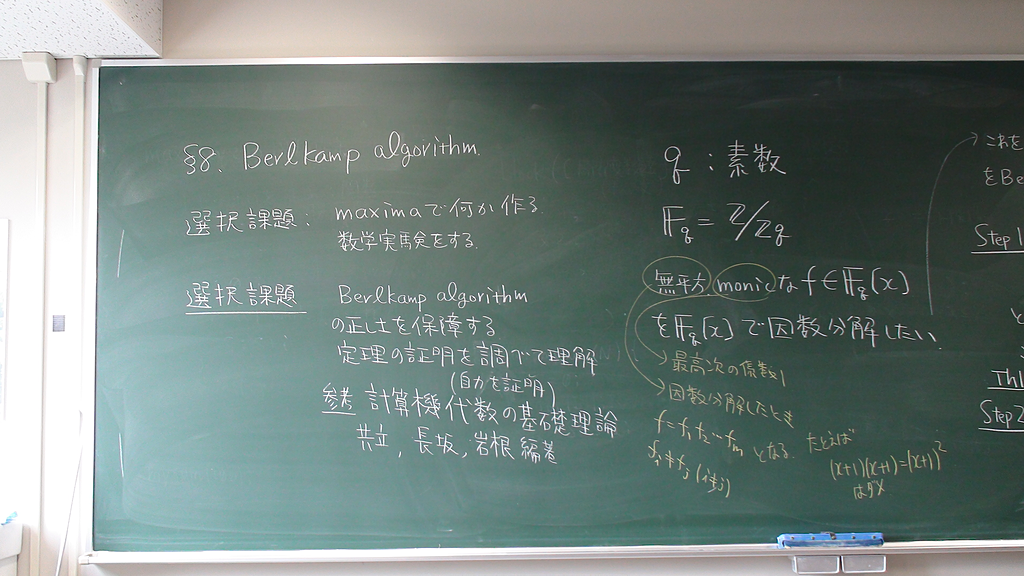 §8. Berlkamp algorithm.
選択課題: maximaで何か作る
数学実験をする.
選択課題 Berlkamp algorithm
の正しさを保障する
定理の証明を調べて理解
(自力を証明)
参考 計算機代数の基礎理論
共立, 長坂, 岩根 編著
q : 素数
𝔽q = Z/Zq
無平方, monicなf∈𝔽q[x]
を𝔽q[x]で因数分解したい.
最高次の係数1
因数分解したとき
f=f₁f₂…fm となる.
fi≠fj (i≠j)
たとえば
(x+1)(x+1)=(x+1)²
はダメ
これを
をBe
Step1
と
Th1
Step2